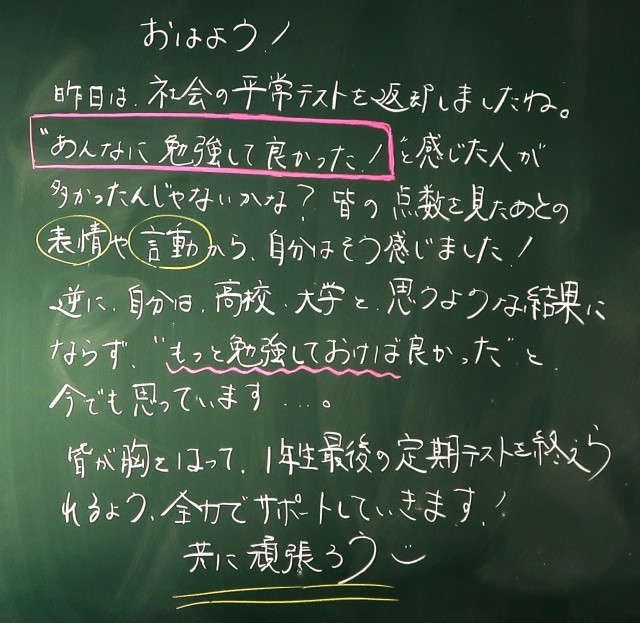 おはよう!
昨日は、社会の平常テストを返却しましたね。
"あんなに勉強して良かった!"と感じた人が
多かったんじゃないかな?皆の点数を見たあとの
表情や言動から、自分はそう感じました!
逆に、自分は、高校、大学と、思うような結果に
ならず、"もっと勉強しておけば良かった"と、
今でも思っています....。
皆が胸をはって、1年生最後の定期テストを終えら
れるよう、全力でサポートしていきます!
共に頑張ろう